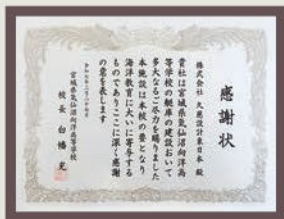 感謝状
株式会社 久慈設計東日本 殿
貴社は宮城県気仙沼向洋高
等学校の艇庫の建設において
多大なるご尽力を賜りました
本施設は本校の要となり
海洋教育に大いに寄与する
ものでありここに深く感謝
の意を表します
宮城県気仙沼向洋高等学校
校長 白幡 充